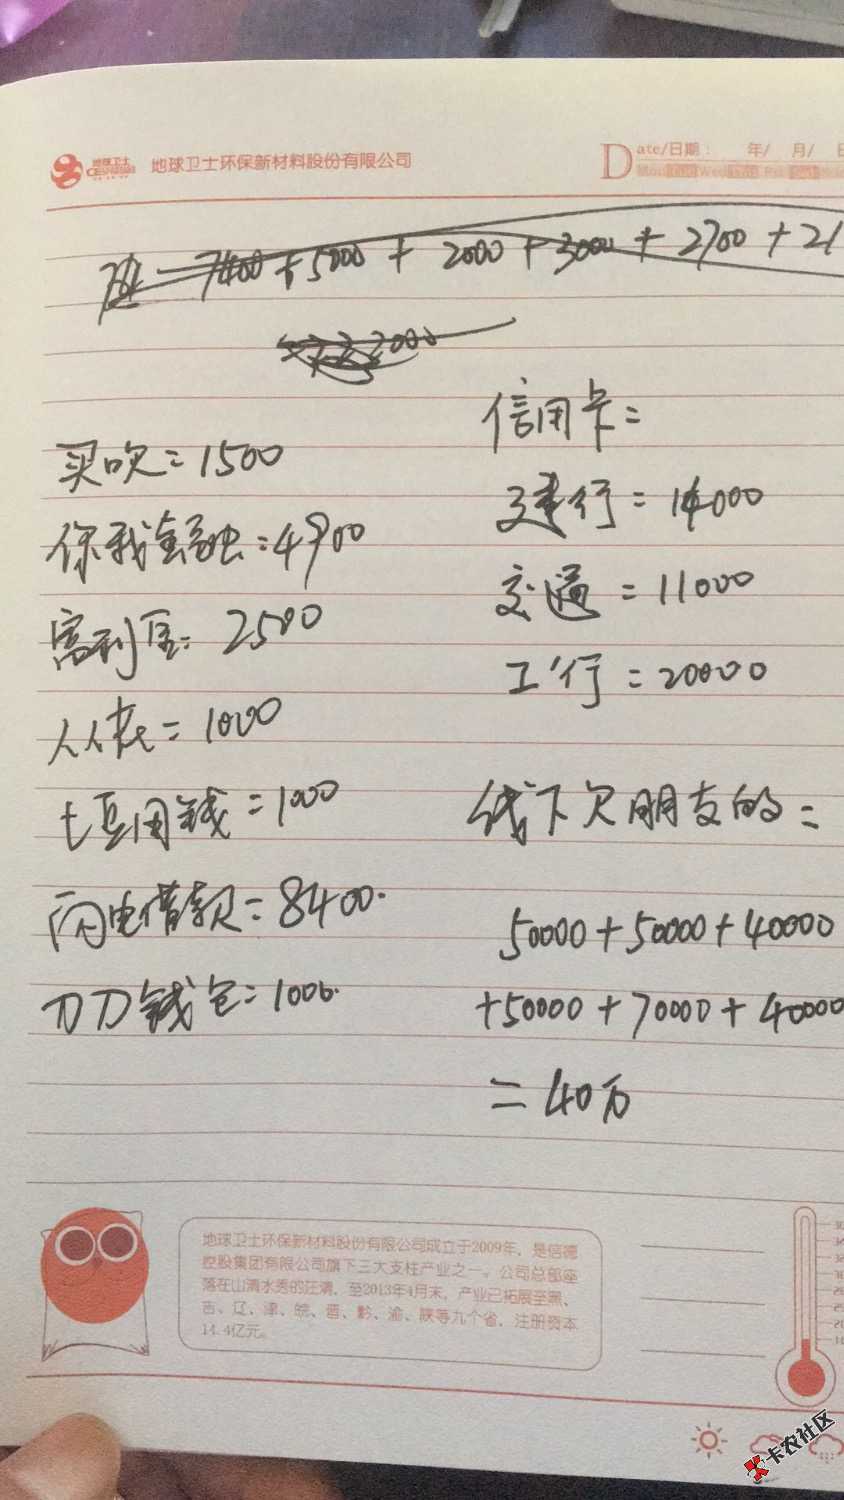 地球卫士环保新材料股份有限公司
Date/日期: 年/ 月/
7400+5000+2000+3000+2700+21
信用卡=
买吹=1500
建行=14000
你我金融=4900
交通=11000
富利宝=2500
工行=20000
人人花=1000
土豆用钱=1000
线下欠朋友的=
闪电借款=8400.
50000+50000+40000
刀刀钱包=1000.
+50000+70000+40000
=40万
地球卫士环保新材料股份有限公司成立于2009年，是信德
控股集团有限公司旗下三大支柱产业之一。公司总部座
落在山清水秀的汪清，至2013年4月末，产业已拓展至黑、
吉、辽、津、皖、晋、黔、渝、陕等九个省，注册资本
14.4亿元。
卡农社区